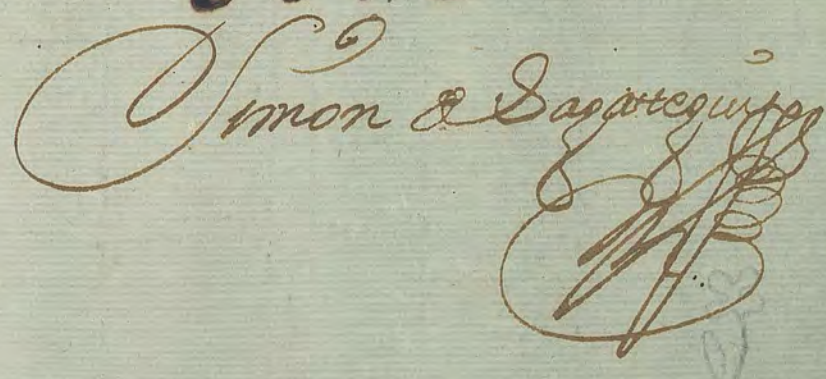 Simón de Sagastegui